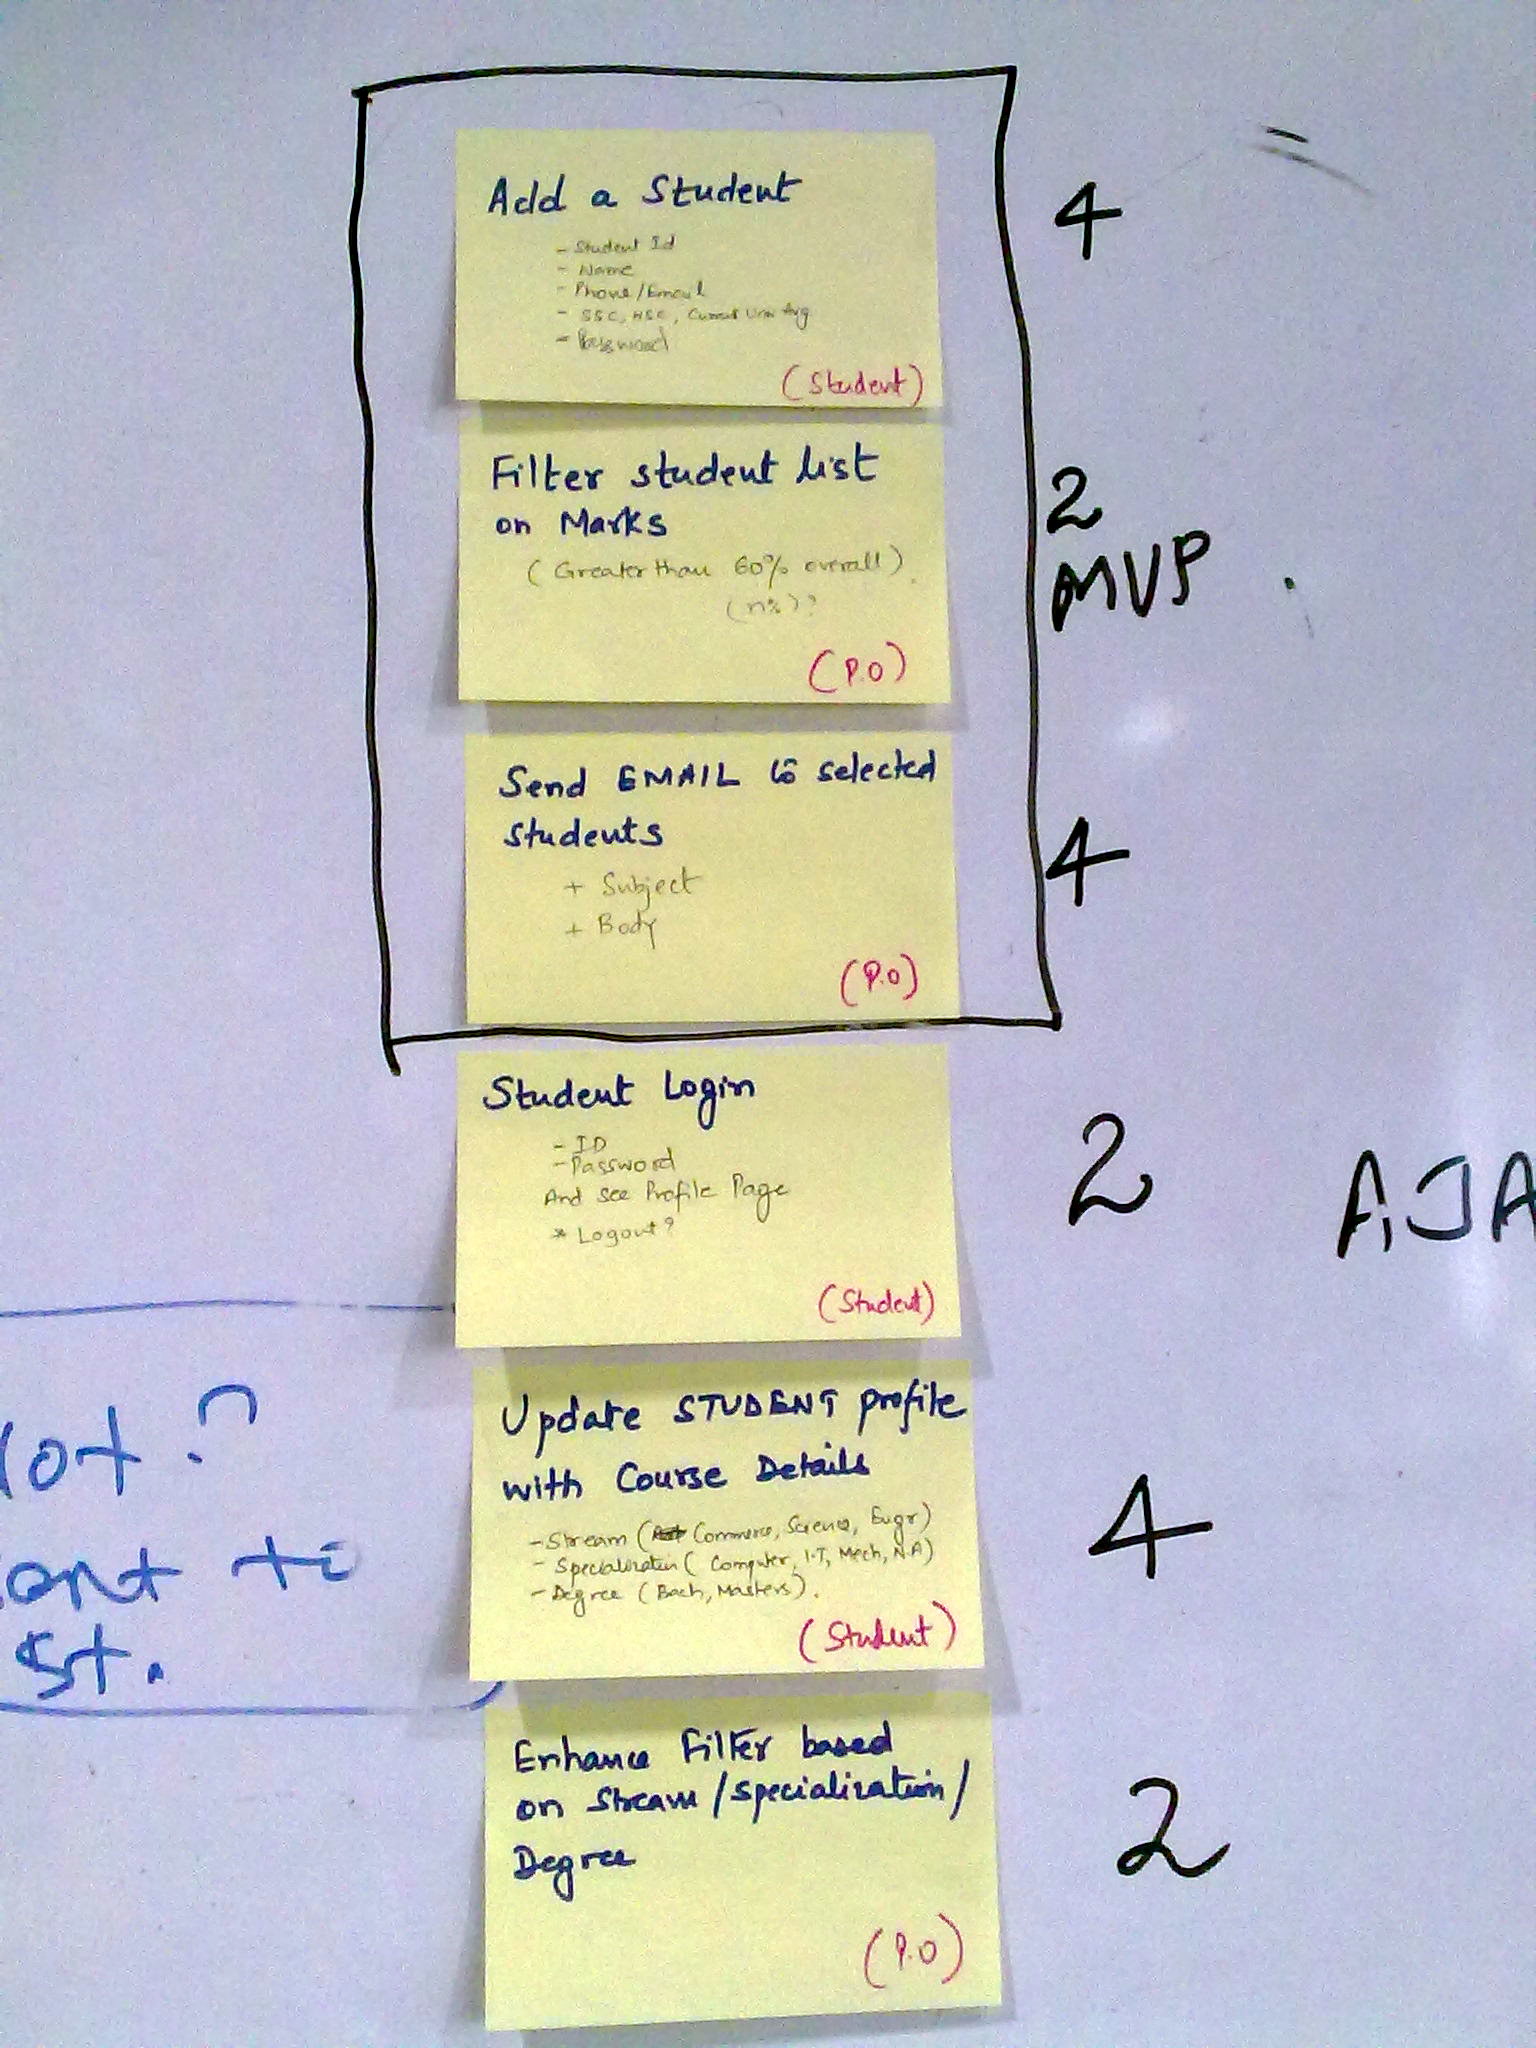 Add a Student
- Student Id
- Name
- Phone/Email
- SSC, HSC, Current Univ Avg
- Password
(Student)
4
Filter student list
on Marks
(Greater than 60% overall).
(n%)?
(P.O)
2
MVP
Send EMAIL to selected
students
+ Subject
+ Body
(P.O)
4
Student Login
- ID
- Password
And see Profile Page
* Logout?
(Student)
2
AJA
Update STUDENT profile
with Course Details
- Stream ( Commerce, Science, Engr)
- Specialization ( Computer, I.T, Mech, N.A)
- Degree ( Bach, Masters).
(Student)
4
Enhance Filter based
on Stream/specialization/
Degree
(P.O)
2
ot ?
ont to
st.